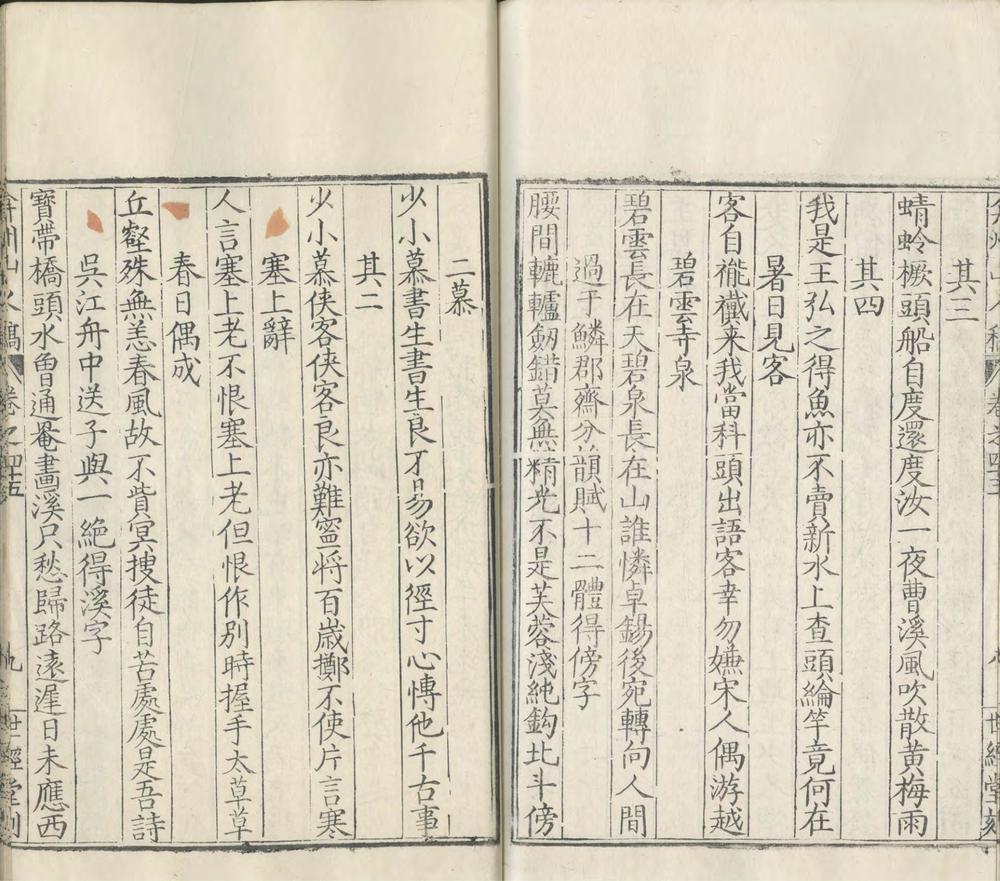 其三
蜻蛉橛頭船自度還度汝一夜曹溪風吹散黃梅雨
其四
我是王弘之得魚亦不賣新水上查頭綸竿竟何在
暑日見客
客自褦襶来我當科頭出語客幸勿嫌宋人偶游越
碧雲寺泉
碧雲長在天碧泉長在山誰憐卓錫後宛轉向人間
過于鱗郡齋分韻賦十二體得傍字
腰間轆轤劒錯莫無精光不是芙蓉淺純鈎北斗傍
二慕
少小慕書生書生良不易欲以徑寸心慱他千古事
其二
少小慕俠客俠客良亦難寧将百歲擲不使片言寒
塞上辭
人言塞上老不恨塞上老但恨作別時握手太草草
春日偶成
丘壑殊無恙春風故不貲冥搜徒自苦處處是吾詩
吳江舟中送子與一絶得溪字
寶帶橋頭水曾通罨畫溪只愁歸路遠遲日未應西
卷之四十五
九
世經堂刻